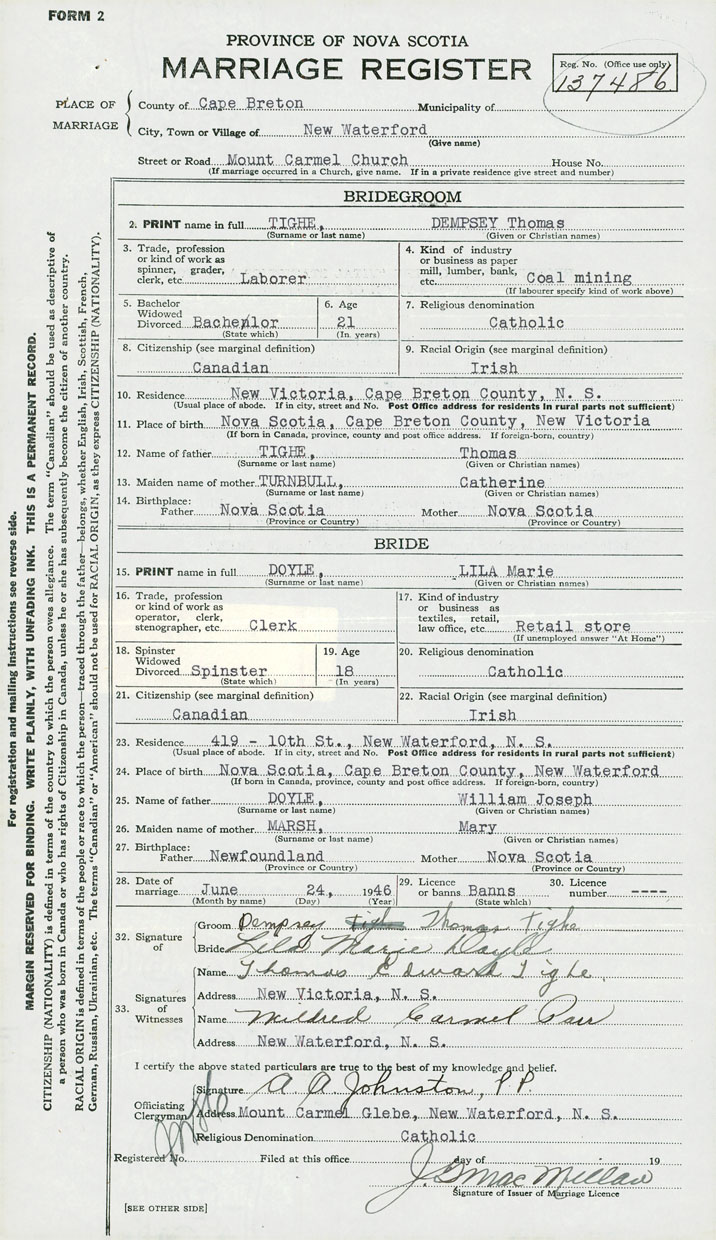 FORM 2
PROVINCE OF NOVA SCOTIA
MARRIAGE REGISTER
Reg. No. (Office use only)
137486
PLACE OF MARRIAGE
County of Cape Breton Municipality of
City, Town or Village of New Waterford
(Give name)
Street or Road Mount Carmel Church House No.
(If marriage occurred in a Church, give name. If in a private residence give street and number)
BRIDEGROOM
2. PRINT name in full TIGHE, DEMPSEY Thomas
(Surname or last name) (Given or Christian names)
3. Trade, profession or kind of work as spinner, grader, clerk, etc. Laborer
4. Kind of industry or business as paper mill, lumber, bank, etc. Coal mining
(If labourer specify kind of work above)
5. Bachelor Widowed Divorced Bachenlor
(State which)
6. Age 21
(In years)
7. Religious denomination
Catholic
8. Citizenship (see marginal definition)
Canadian
9. Racial Origin (see marginal definition)
Irish
10. Residence New Victoria, Cape Breton County, N. S.
(Usual place of abode. If in city, street and No. Post Office address for residents in rural parts not sufficient)
11. Place of birth Nova Scotia, Cape Breton County, New Victoria
(If born in Canada, province, county and post office address. If foreign-born, country)
12. Name of father TIGHE, Thomas
(Surname or last name) (Given or Christian names)
13. Maiden name of mother TURNBULL, Catherine
(Surname or last name) (Given or Christian names)
14. Birthplace:
Father Nova Scotia Mother Nova Scotia
(Province or Country) (Province or Country)
BRIDE
15. PRINT name in full DOYLE, LILA Marie
(Surname or last name) (Given or Christian names)
16. Trade, profession or kind of work as operator, clerk, stenographer, etc. Clerk
17. Kind of industry or business as textiles, retail, law office, etc. Retail store
(If unemployed answer "At Home")
18. Spinster Widowed Divorced Spinster
(State which)
19. Age 18
(In years)
20. Religious denomination
Catholic
21. Citizenship (see marginal definition)
Canadian
22. Racial Origin (see marginal definition)
Irish
23. Residence 419 - 10th St., New Waterford, N. S.
(Usual place of abode. If in city, street and No. Post Office address for residents in rural parts not sufficient)
24. Place of birth Nova Scotia, Cape Breton County, New Waterford
(If born in Canada, province, county and post office address. If foreign-born, country)
25. Name of father DOYLE, William Joseph
(Surname or last name) (Given or Christian names)
26. Maiden name of mother MARSH, Mary
(Surname or last name) (Given or Christian names)
27. Birthplace:
Father Newfoundland Mother Nova Scotia
(Province or Country) (Province or Country)
28. Date of marriage June 24, 1946
(Month by name) (Day) (Year)
29. Licence or banns Banns
(State which)
30. Licence number ----
32. Signature of
Groom Dempsey Tigh Thomas Tighe
Bride Lila Marie Doyle
33. Signatures of Witnesses
Name Thomas Edward Tighe
Address New Victoria, N. S.
Name Mildred Carmel Parr
Address New Waterford, N. S.
I certify the above stated particulars are true to the best of my knowledge and belief.
Officiating Clergyman
Signature A A Johnston, P.P.
Address Mount Carmel Glebe, New Waterford, N. S.
Religious Denomination Catholic
Registered No. Filed at this office day of 19
J. G MacMillan
Signature of Issuer of Marriage Licence
[SEE OTHER SIDE]
For registration and mailing instructions see reverse side.
MARGIN RESERVED FOR BINDING. WRITE PLAINLY, WITH UNFADING INK. THIS IS A PERMANENT RECORD.
CITIZENSHIP (NATIONALITY) is defined in terms of the country to which the person owes allegiance. The term "Canadian" should be used as descriptive of
a person who was born in Canada or who has rights of Citizenship in Canada, unless he or she has subsequently become the citizen of another country.
RACIAL ORIGIN is defined in terms of the people or race to which the person—traced through the father—belongs, whether English, Irish, Scottish, French,
German, Russian, Ukrainian, etc. The terms "Canadian" or "American" should not be used for RACIAL ORIGIN, as they express CITIZENSHIP (NATIONALITY).